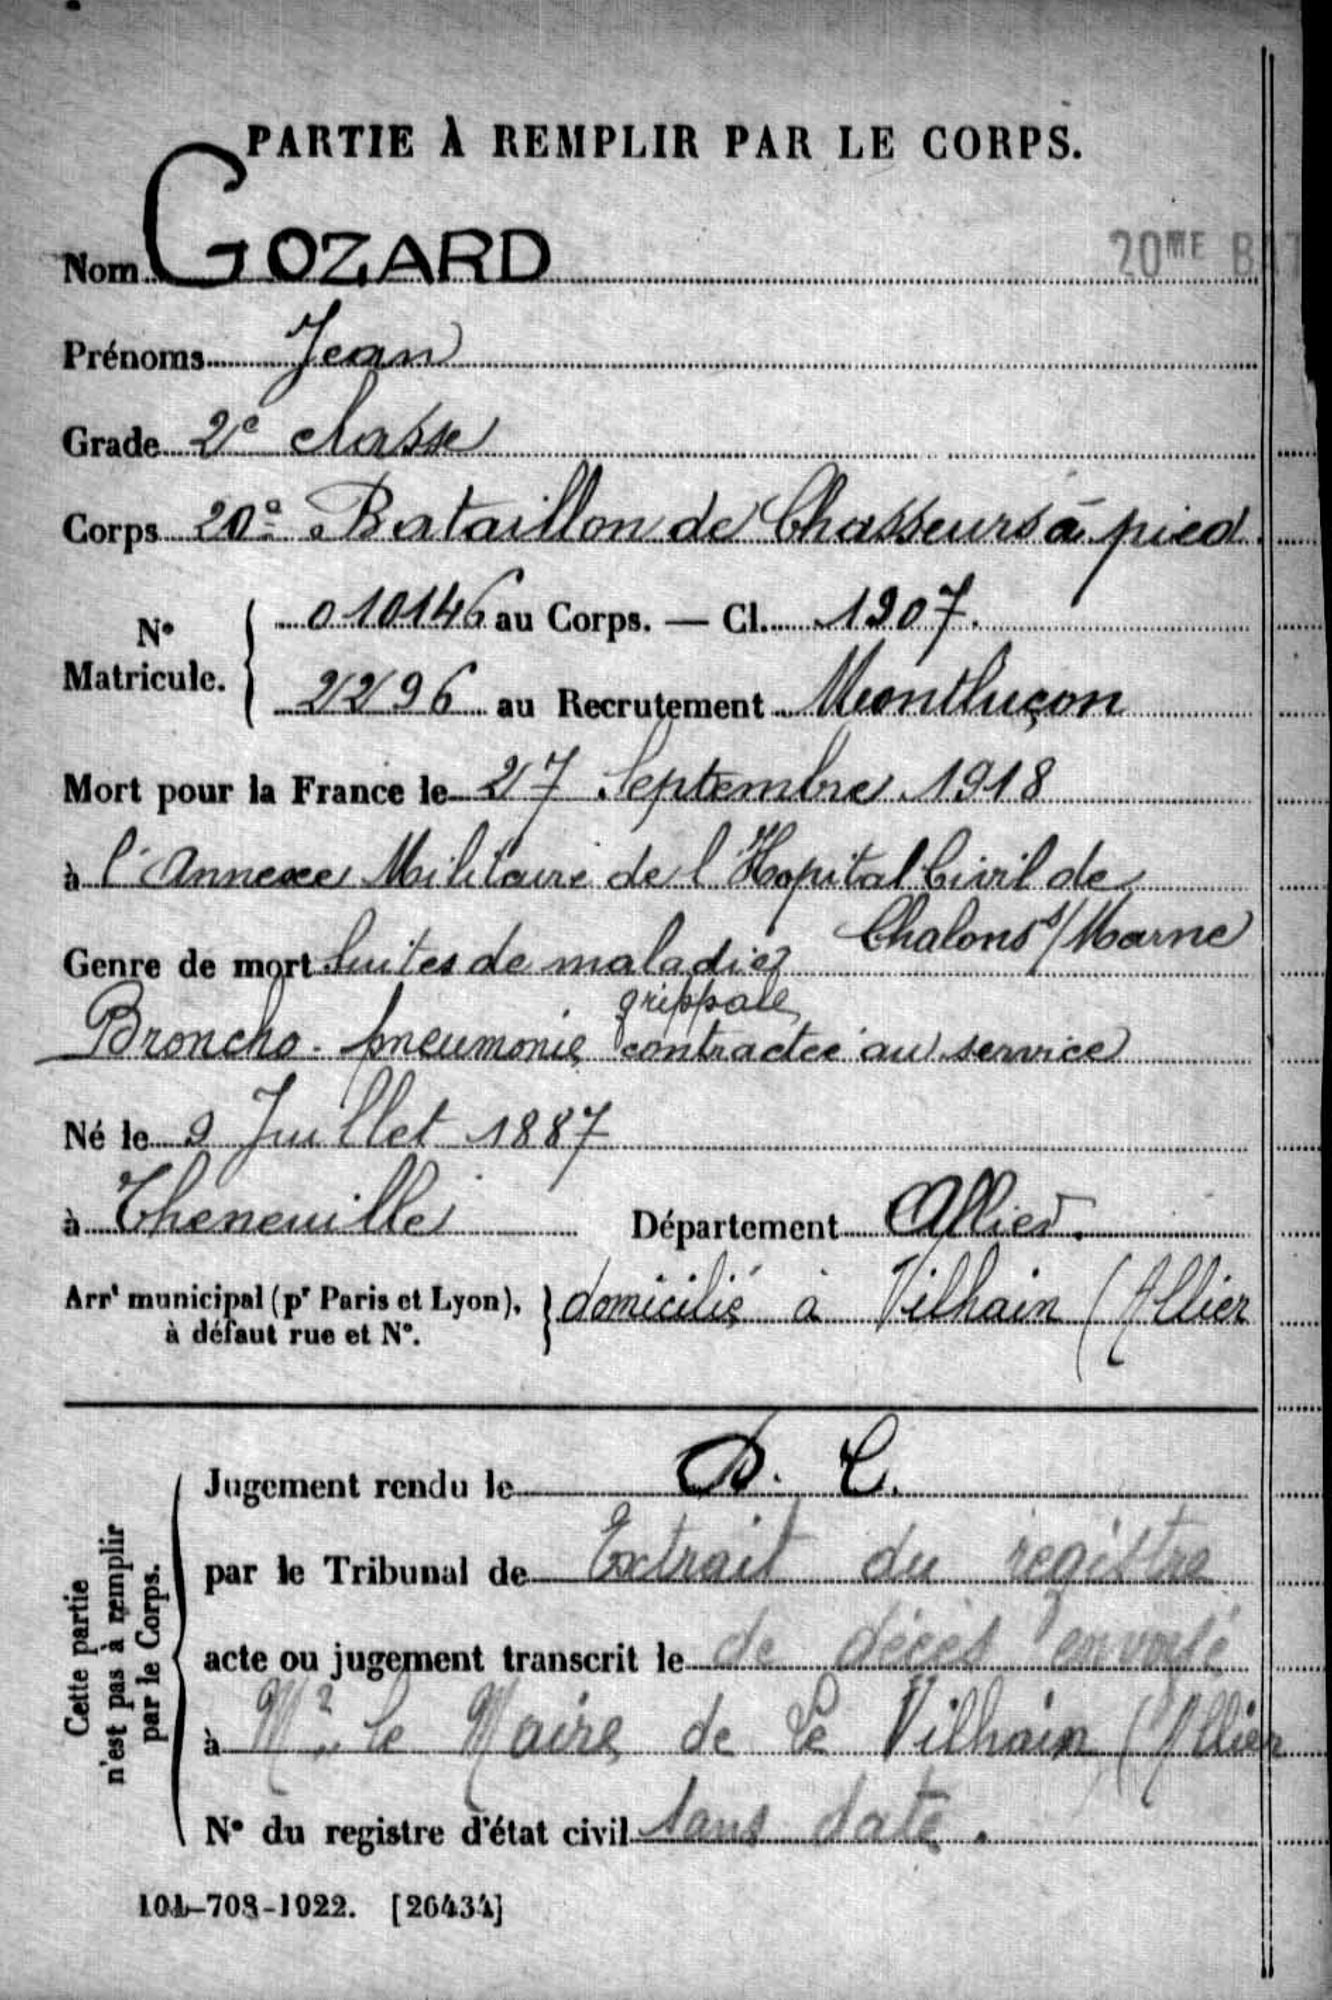 PARTIE À REMPLIR PAR LE CORPS.
20ME BAT
Nom GOZARD
Prénoms Jean
Grade 2e classe
Corps 20e Bataillon de Chasseurs à pied.
N° Matricule. { 010146 au Corps. — Cl. 1907.
2296 au Recrutement Montluçon
Mort pour la France le 27 Septembre 1918
à l'Annexe Militaire de l'Hopital Civil de
Chalons s/Marne
Genre de mort Suites de maladie
grippale
Broncho-pneumonie contractée au service
Né le 9 Juillet 1887
à Theneuille Département Allier.
Arrt municipal (pr Paris et Lyon), à défaut rue et N°. } domicilié à Vilhain (Allier
Cette partie n'est pas à remplir par le Corps.
Jugement rendu le D. C.
par le Tribunal de Extrait du registre
acte ou jugement transcrit le de décès envoyé
à Mr le Maire de Le Vilhain (Allier
N° du registre d'état civil sans date.
101-708-1922. [26434]